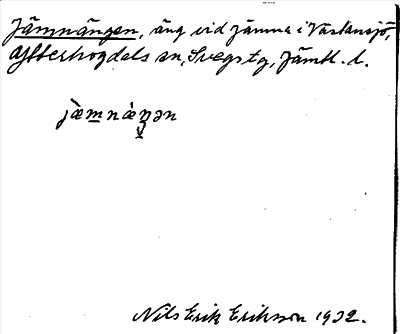 Jämnängen, äng vid Jämna i Västansjö,
Ytterhogdals sn, Svegs tg, Jämtl. l.
jæ̀mnæ̀ŋən
Nils Erik Eriksson 1932.